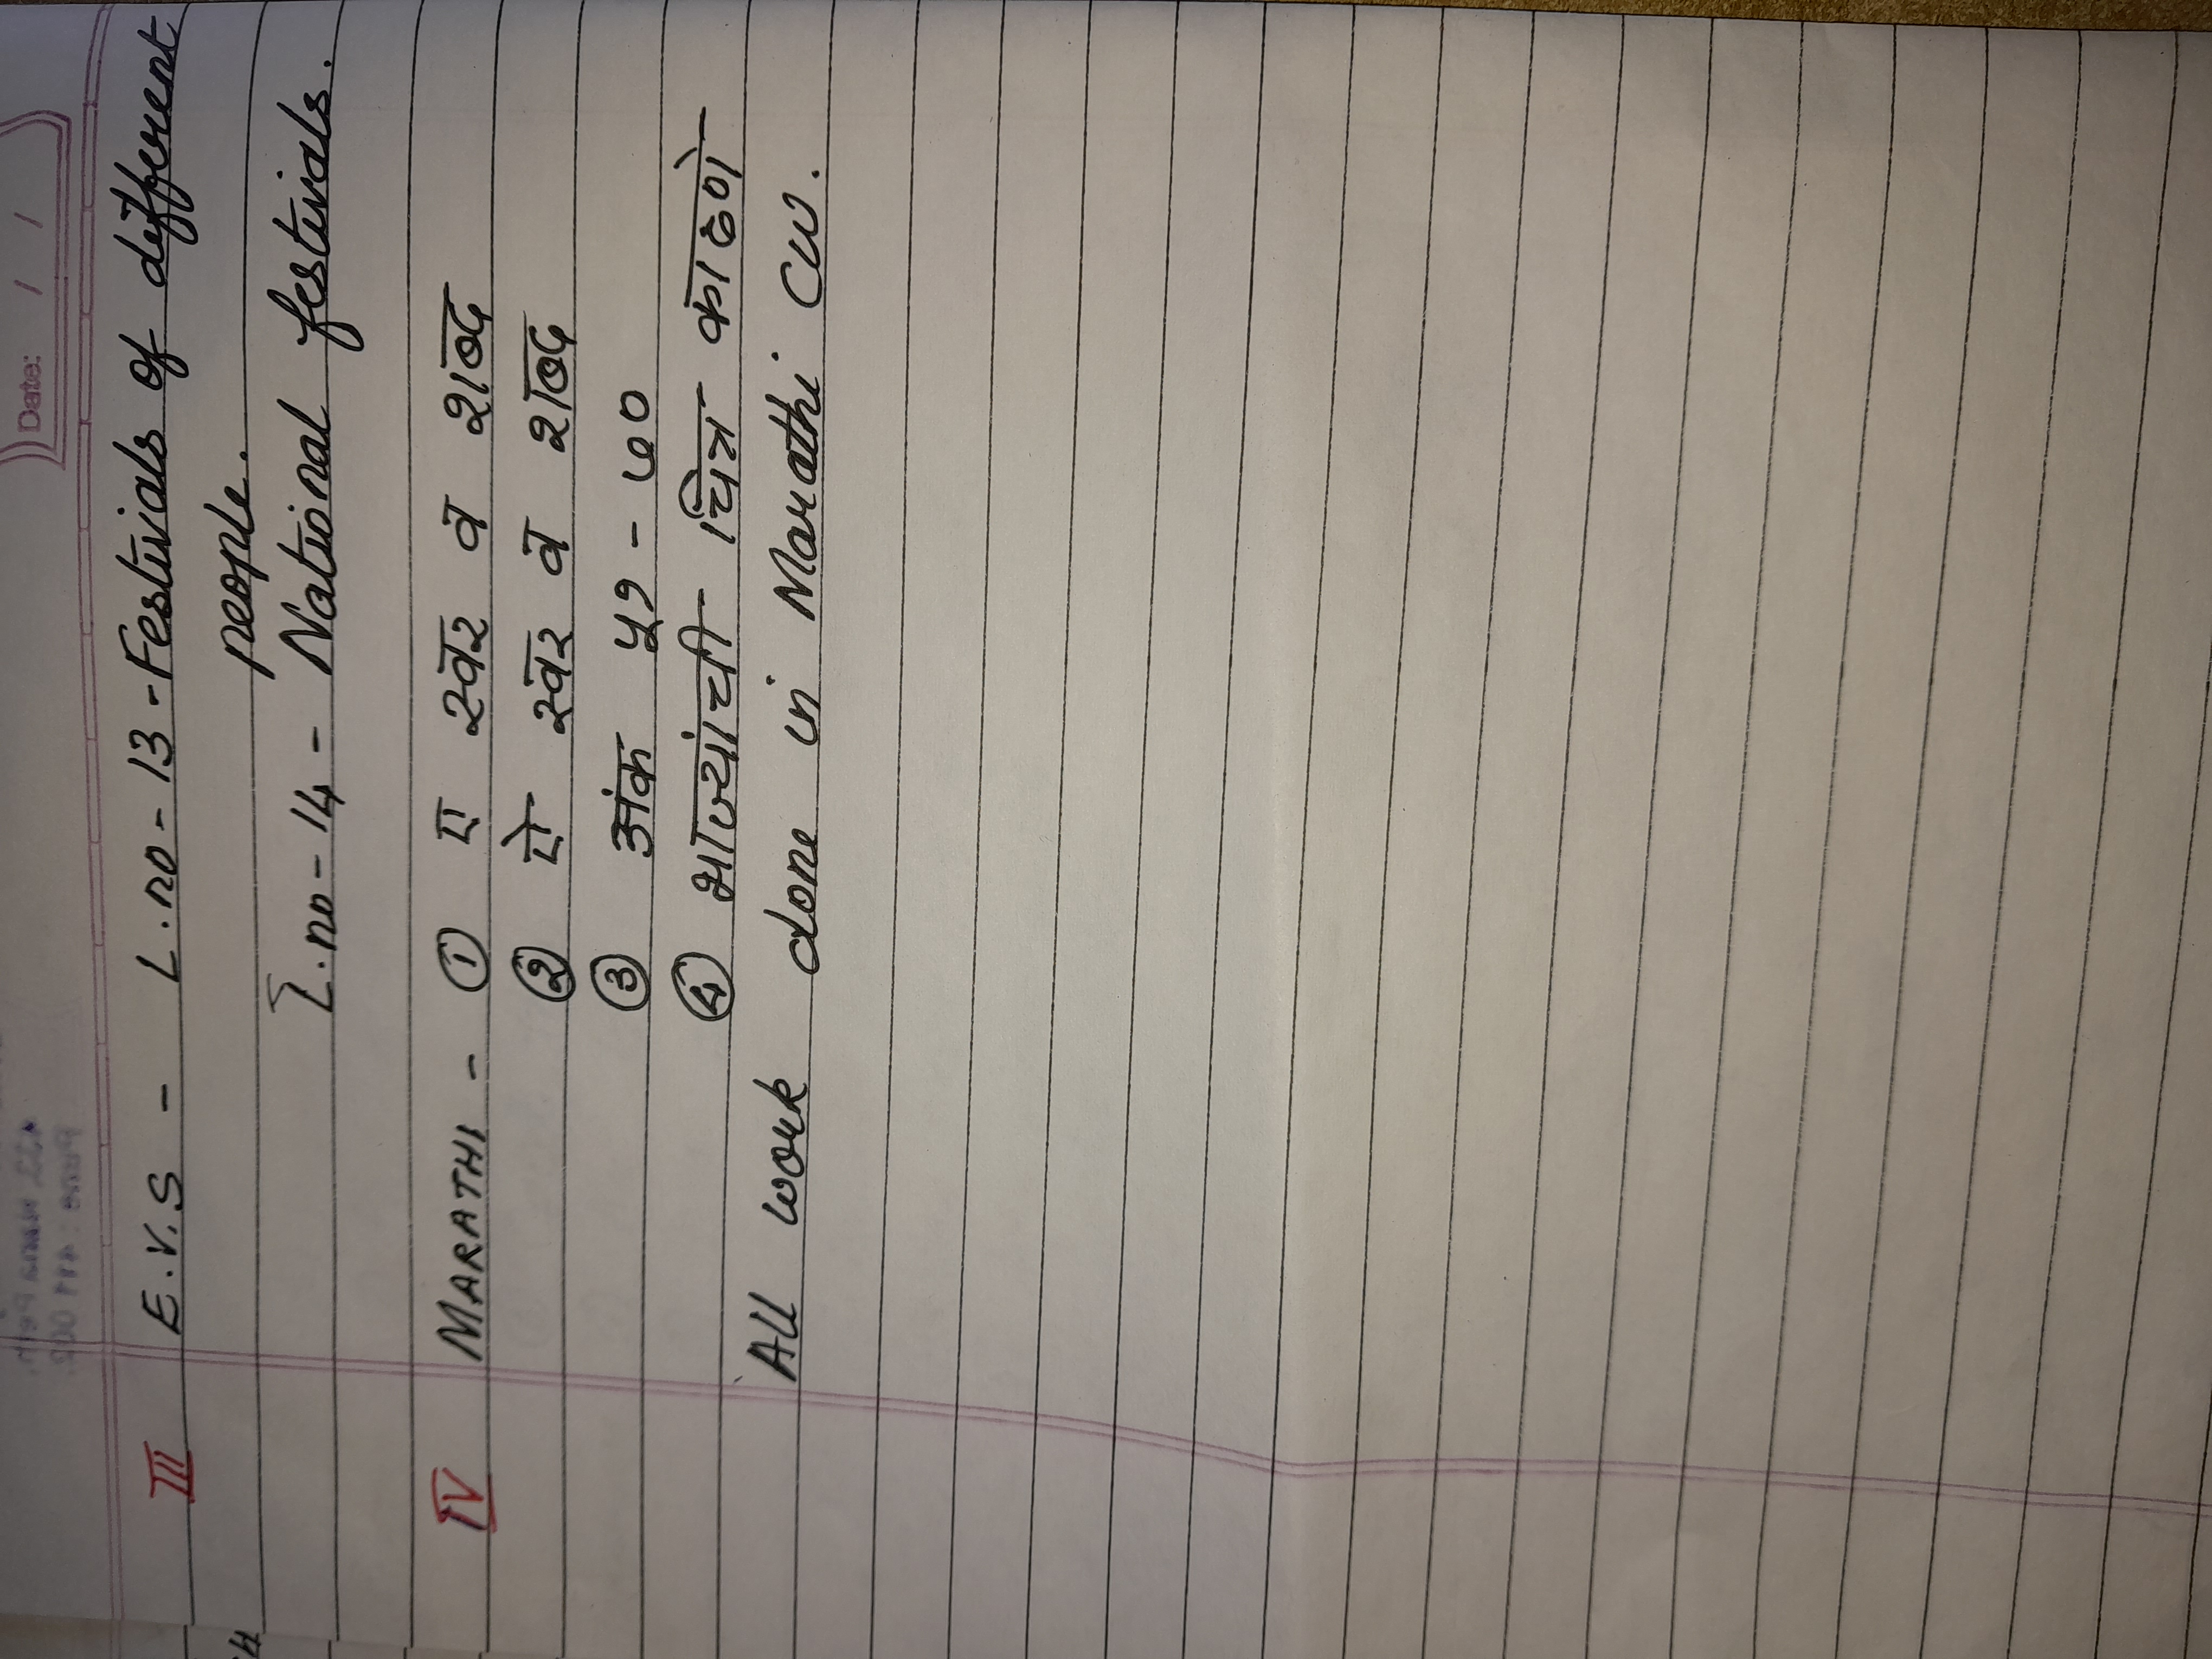 Date: / /
III E.V.S - L.no - 13 - Festivals of different
people.
L.no - 14 - National festivals.
IV MARATHI - ① ए स्वर व शब्द
② ऐ स्वर व शब्द
③ अंक ५१ - ७०
④ भाज्यांची चित्र काढणे
All work done in Marathi CW.